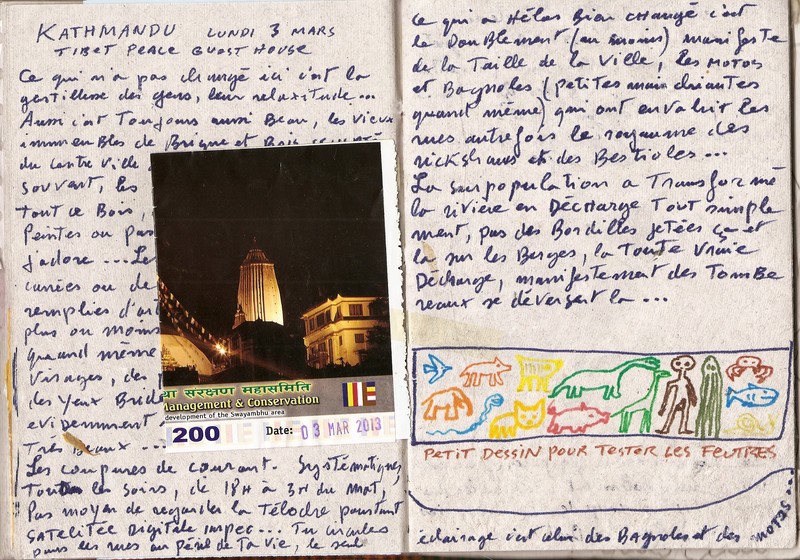 KATHMANDU LUNDI 3 MARS
TIBET PEACE GUEST HOUSE
Ce qui n'a pas changé ici c'est la
gentillesse des gens, leur relaxitude...
Aussi c'est Toujours aussi Beau, les vieux
immeubles de Brique et Bois
du centre ville
souvent, les
tout ce Bois,
Peintes ou pas
j'adore ... Les
ou de
remplies d'
plus ou moins
quand même
Visages, des
des Yeux Brid
evidemment
Très Beaux ...
Les coupures de courant. Systématiques,
Tous les soirs, de 18H à 3H du mat,
Pas moyen de regarder la Téloche pourtant
SATELITÉE Digitale impec... Tu marches
dans les rues au péril de Ta vie, le seul
था संरक्षण महासमिति
Management & Conservation
development of the Swayambhu area
200 Date: 03 MAR 2013
Ce qui a Hélas Bien changé c'est
le Doublement (au moins) manifeste
de la Taille de la Ville, les Motos
et Bagnoles (petites mais chiantes
quand même) qui ont envahit les
rues autrefois le royaume des
rickshaws et des Bestioles...
La surpopulation a Transformé
la rivière en DÉcharge Tout simple
ment, pas des Bordilles jetées çà et
là sur les Berges, la Toute Vraie
Décharge, manifestement des Tombe
reaux se déversent là ...
PETIT DESSIN POUR TESTER LES FEUTRES
éclairage c'est celui des Bagnoles et des MOTOS...